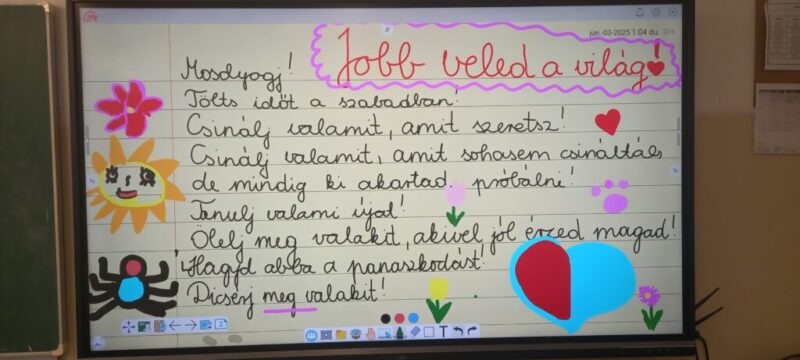 jún.-03-2025 1:04 du. 2/4
Jobb veled a világ!
Mosolyogj!
Tölts időt a szabadban!
Csinálj valamit, amit szeretsz!
Csinálj valamit, amit sohasem csináltál,
de mindig ki akartad próbálni!
Tanulj valami újat!
Ölelj meg valakit, akivel jól érzed magad!
Hagyd abba a panaszkodást!
Dicsérj meg valakit!
2
T